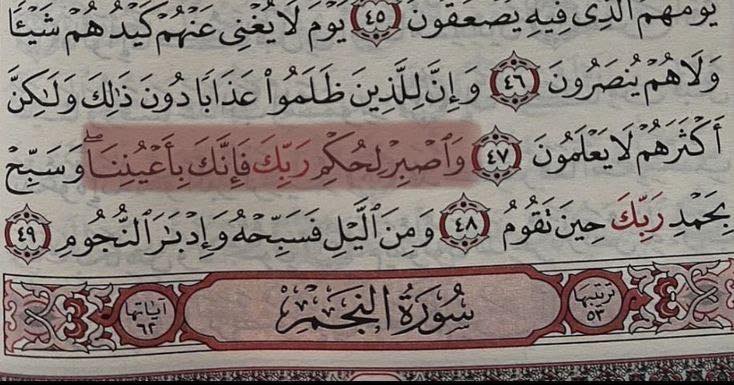 يَوْمَهُمُ ٱلَّذِى فِيهِ يُصْعَقُونَ ٤٥ يَوْمَ لَا يُغْنِى عَنْهُمْ كَيْدُهُمْ شَيْـًٔا
وَلَا هُمْ يُنصَرُونَ ٤٦ وَإِنَّ لِلَّذِينَ ظَلَمُوا۟ عَذَابًا دُونَ ذَٰلِكَ وَلَـٰكِنَّ
أَكْثَرَهُمْ لَا يَعْلَمُونَ ٤٧ وَٱصْبِرْ لِحُكْمِ رَبِّكَ فَإِنَّكَ بِأَعْيُنِنَا ۖ وَسَبِّحْ
بِحَمْدِ رَبِّكَ حِينَ تَقُومُ ٤٨ وَمِنَ ٱلَّيْلِ فَسَبِّحْهُ وَإِدْبَـٰرَ ٱلنُّجُومِ ٤٩
ترتيبها ٥٣ سُورَةُ النَّجْمِ آياتها ٦٢